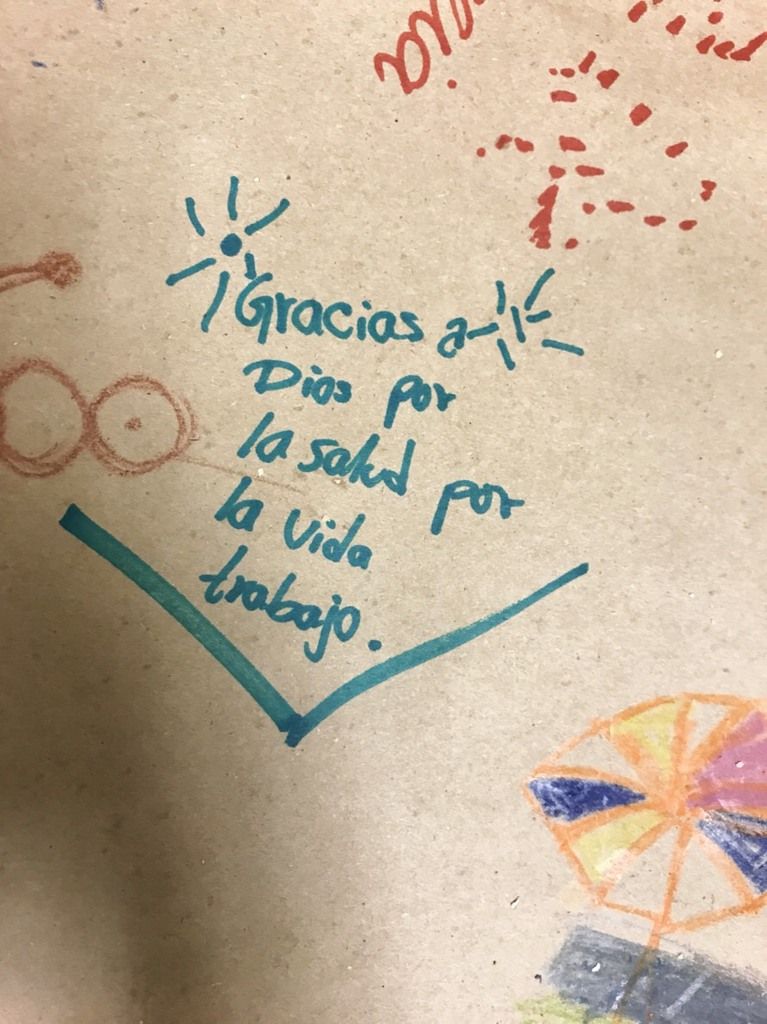 Gracias a
Dios por
la salud por
la vida
trabajo.